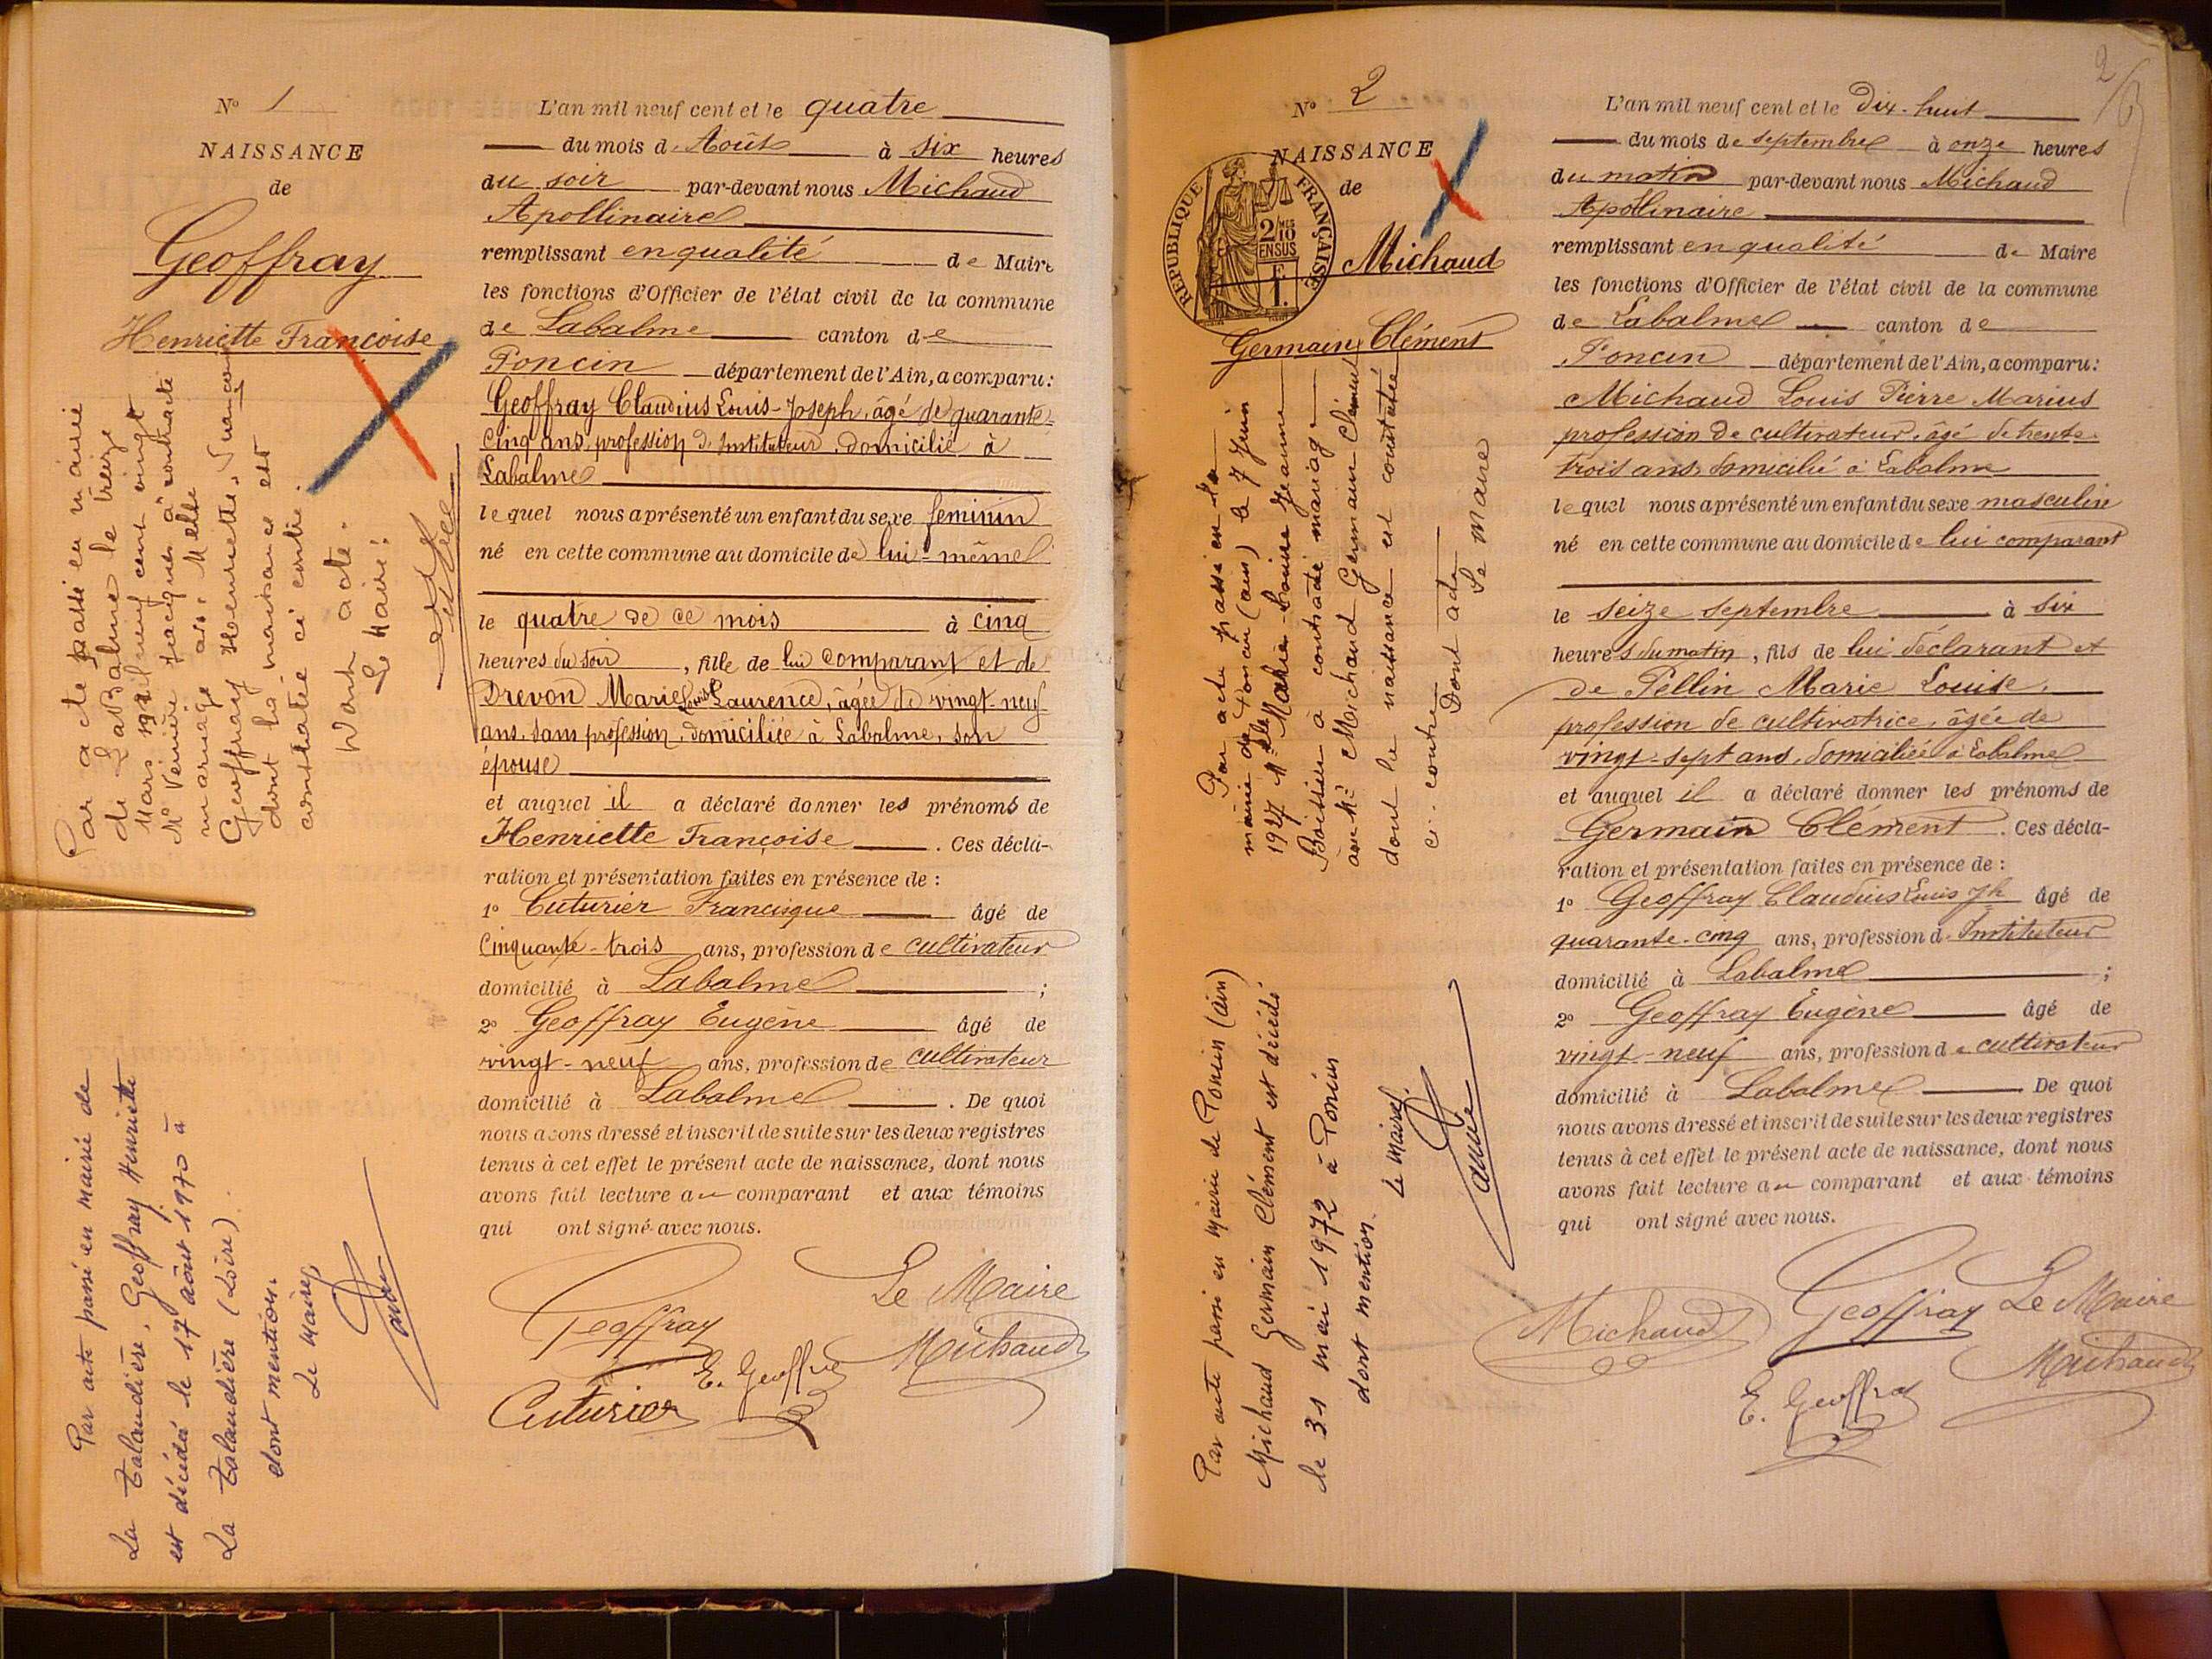 N° 1
NAISSANCE
de
Geoffray
Henriette Françoise
Par acte passé en mairie
de LaBalme le treize
Mars mil neuf cent vingt
Mr Jacques à contracté
mariage avec Melle
Geoffray Henriette, Françoise
dont la naissance est
constatée ci contre.
Dont acte.
Le Maire:
Par acte passé en mairie de
La Talaudière, Geoffray Henriette
est décédé le 17 août 1970 à
La Talaudière (Loire).
dont mention.
Le Maire,
L'an mil neuf cent et le quatre
du mois d'Août à six heures
du soir par-devant nous Michaud
Apollinaire
remplissant en qualité de Maire
les fonctions d'Officier de l'état civil de la commune
de Labalme canton de
Poncin département de l'Ain, a comparu:
Geoffray Claudius Louis-Joseph, âgé de quarante-
cinq ans, profession d'Instituteur, domicilié à
Labalme
lequel nous a présenté un enfant du sexe féminin
né en cette commune au domicile de lui-même
le quatre de ce mois à cinq
heures du soir, fille de lui comparant et de
Drevon Marie Louise Laurence, âgée de vingt-neuf
ans, sans profession, domiciliée à Labalme, son
épouse
et auquel il a déclaré donner les prénoms de
Henriette Françoise. Ces décla-
ration et présentation faites en présence de :
1° Cuturier Francisque âgé de
cinquante-trois ans, profession de cultivateur
domicilié à Labalme ;
2° Geoffray Eugène âgé de
vingt-neuf ans, profession de cultivateur
domicilié à Labalme. De quoi
nous avons dressé et inscrit de suite sur les deux registres
tenus à cet effet le présent acte de naissance, dont nous
avons fait lecture au comparant et aux témoins
qui ont signé avec nous.
Geoffray Le Maire
E. Geoffray Michaud
Cuturier
2
N° 2
NAISSANCE
de
REPUBLIQUE FRANÇAISE
2/10 EN SUS
1 F.
Michaud
Germain Clément
Par acte passé en la
mairie de Poncin (ain) le 7 Juin
1927 Melle Louise Jeanne
à contracté mariage
avec Mr Michaud Germain Clément
dont la naissance est constatée
ci-contre
Dont acte
Le Maire
Par acte passé en Mairie de Poncin (ain)
Michaud Germain Clément est décédé
le 31 mai 1972 à Poncin
dont mention.
Le Maire,
L'an mil neuf cent et le dix-huit
du mois de septembre à onze heures
du matin par-devant nous Michaud
Apollinaire
remplissant en qualité de Maire
les fonctions d'Officier de l'état civil de la commune
de Labalme canton de
Poncin département de l'Ain, a comparu:
Michaud Louis Pierre Marius
profession de cultivateur, âgé de trente-
trois ans, domicilié à Labalme
lequel nous a présenté un enfant du sexe masculin
né en cette commune au domicile de lui comparant
le seize septembre à six
heures du matin, fils de lui déclarant et
de Pellin Marie Louise,
profession de cultivatrice, âgée de
vingt-sept ans, domiciliée à Labalme
et auquel il a déclaré donner les prénoms de
Germain Clément. Ces décla-
ration et présentation faites en présence de :
1° Geoffray Claudius Louis Jh âgé de
quarante-cinq ans, profession d'Instituteur
domicilié à Labalme ;
2° Geoffray Eugène âgé de
vingt-neuf ans, profession de cultivateur
domicilié à Labalme De quoi
nous avons dressé et inscrit de suite sur les deux registres
tenus à cet effet le présent acte de naissance, dont nous
avons fait lecture au comparant et aux témoins
qui ont signé avec nous.
Michaud Geoffray Le Maire
E. Geoffray Michaud